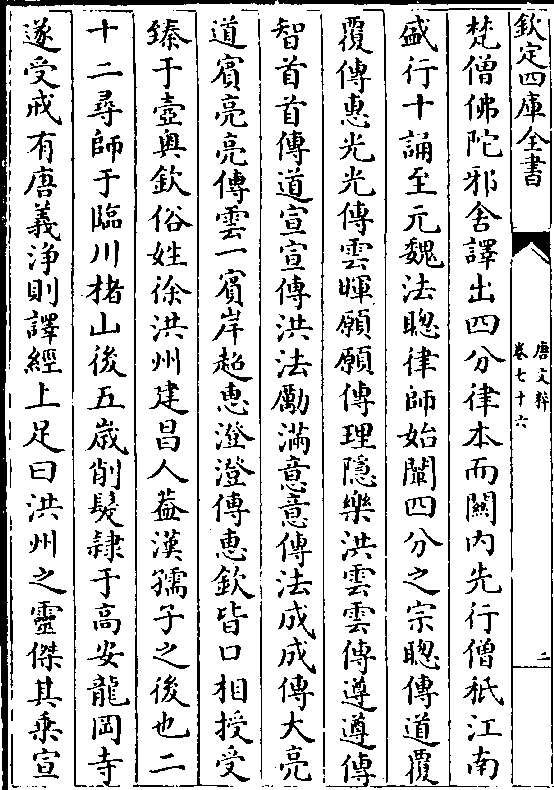 欽定四庫全書
唐文粹
卷七十六
二
梵僧佛陀邪舍譯出四分律本而關内先行僧祇江南
盛行十誦至元魏法聰律師始闡四分之宗聰傳道覆
覆傳惠光光傳雲暉願願傳理隱樂洪雲雲傳遵遵傳
智首首傳道宣宣傳洪法勵滿意意傳法成成傳大亮
道賓亮亮傳雲一賓岸超惠澄澄傳惠欽皆口相授受
臻于壼奥欽俗姓徐洪州建昌人葢漢孺子之後也二
十二尋師于臨川楮山後五歲削髮隸于高安龍岡寺
遂受戒有唐義浄則譯經上足曰洪州之靈傑其乘宣